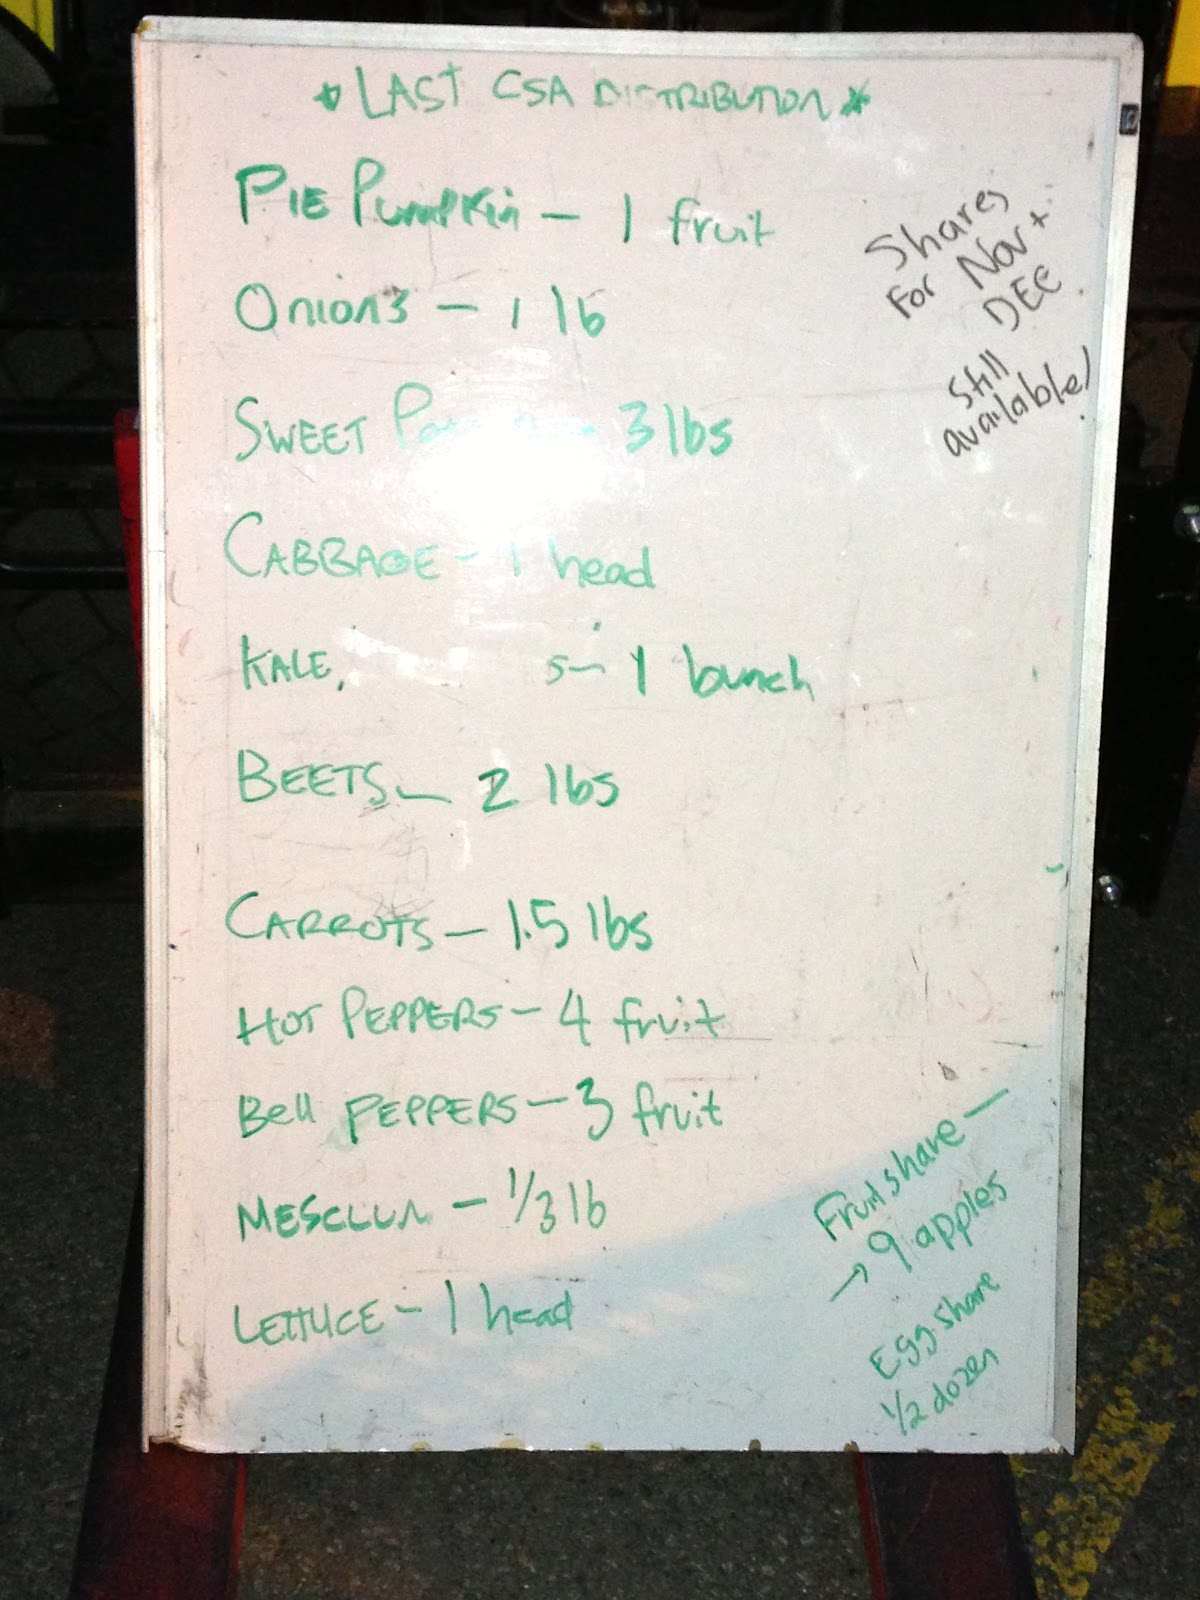 LAST CSA DISTRIBUTION
PIE PUMPKIN - 1 fruit
Onions - 1 lb
SWEET - 3 lbs
CABBAGE - 1 head
KALE, s - 1 bunch
BEETS - 2 lbs
CARROTS - 1.5 lbs
HOT PEPPERS - 4 fruit
Bell PEPPERS - 3 fruit
MESCLUN - 1/3 lb
LETTUCE - 1 head
Shares
For Nov +
DEC
Still
available!
Fruit share -
→ 9 apples
Egg share
1/2 dozen